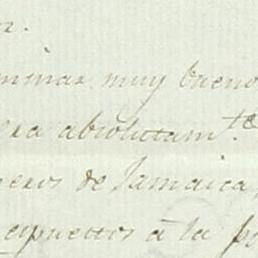 n.
minar muy bueno
era absolutam.te
neros de Jamaica,
expuestos a la po